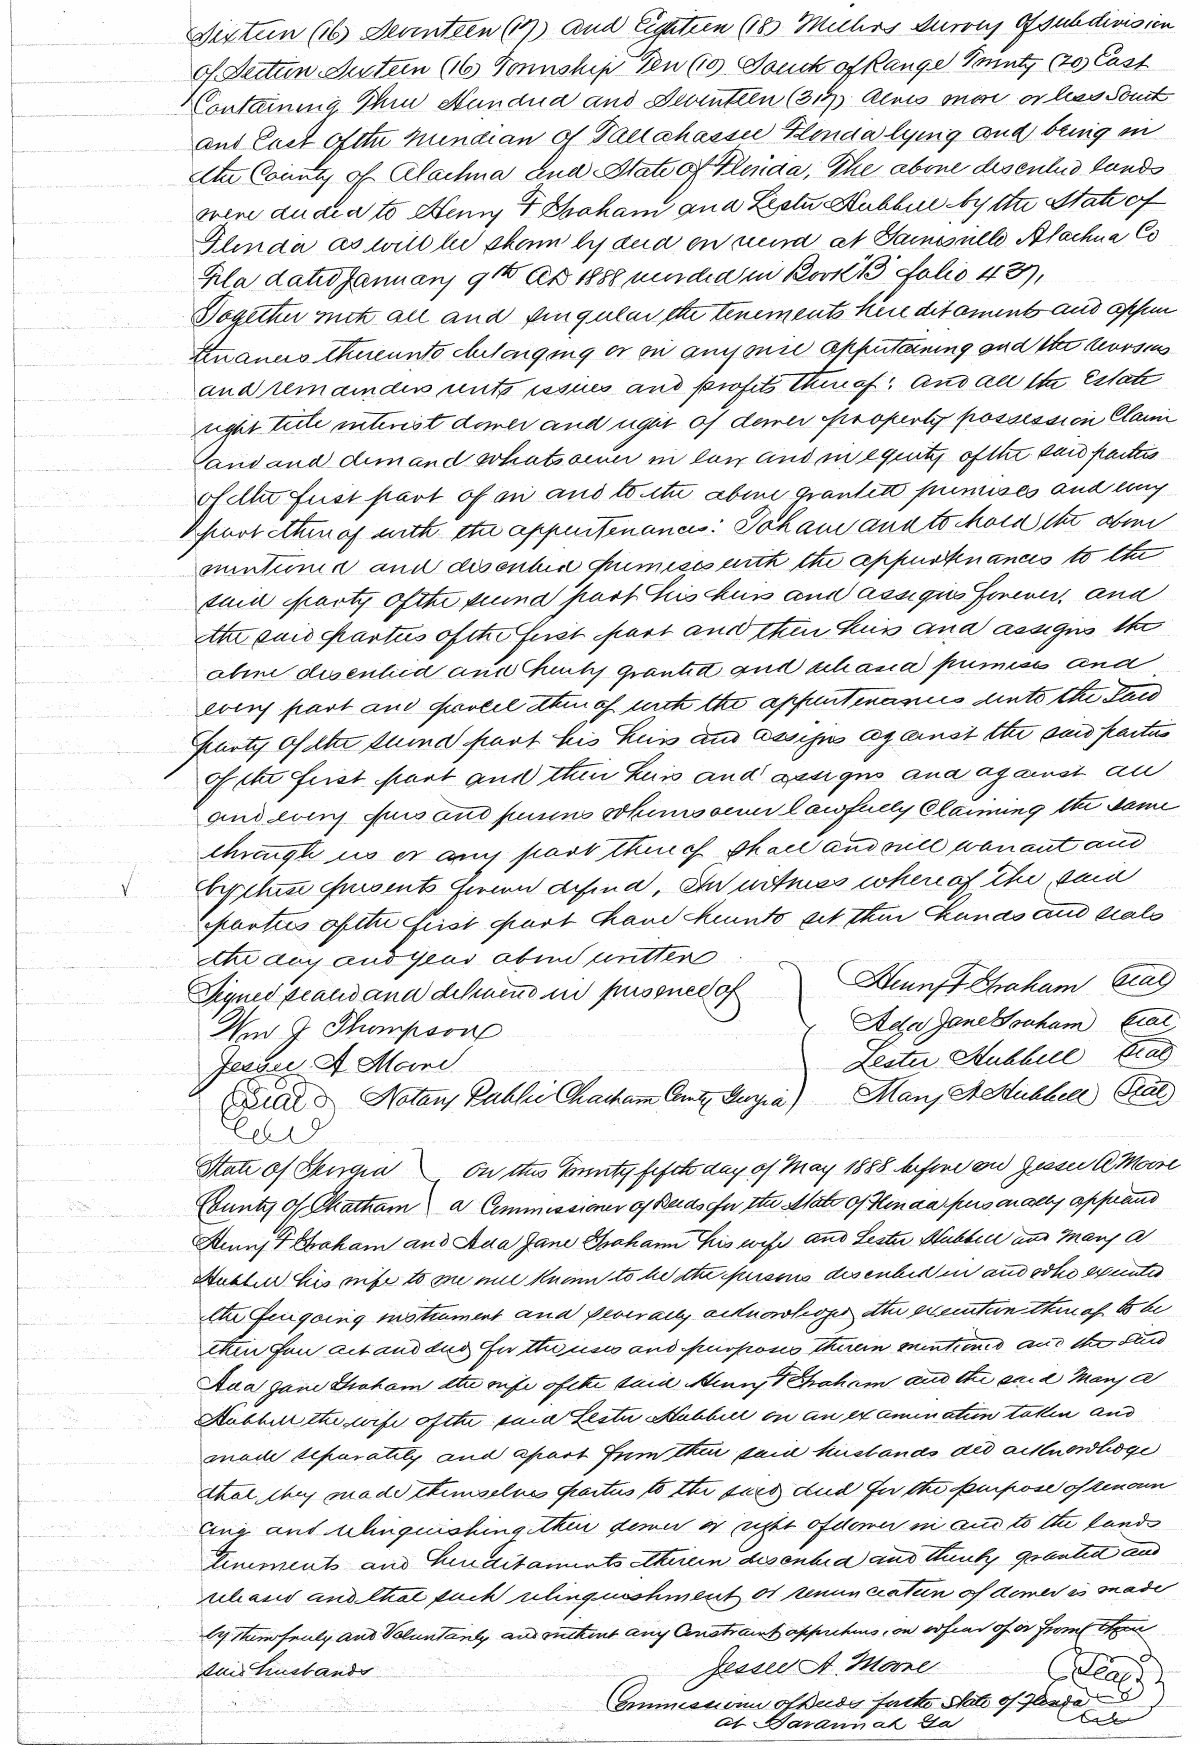 Sixteen (16) Seventeen (17) and Eighteen (18) Millers Survey of subdivision
of Section Sixteen (16) Township Ten (10) South of Range Twenty (20) East
Containing Three Hundred and Seventeen (317) Acres more or less South
and East of the meridian of Tallahassee Florida lying and being in
the County of Alachua and State of Florida, The above described lands
were deeded to Henry F Graham and Lester Hubbell by the State of
Florida as will be shown by deed on record at Gainesville Alachua Co
Fla dated January 9th AD 1888 recorded in Book "B" folio 437,
Together with all and singular the tenements hereditaments and appur
tenances thereunto belonging or in anywise appertaining and the reversions
and remainders rents issues and profits thereof: and all the Estate
right title interest dower and right of dower property possession Claim
and and demand whatsoever in law and in equity of the said parties
of the first part of in and to the above granted premises and every
part thereof with the appurtenances: To have and to hold the above
mentioned and described premises with the appurtenances to the
said party of the second part his heirs and assigns forever, and
the said parties of the first part and their heirs and assigns the
above described and hereby granted and released premises and
every part and parcel thereof with the appurtenances unto the said
party of the second part his heirs and assigns against the said parties
of the first part and their heirs and assigns and against all
and every pers and persons whomsoever lawfully Claiming the same
through us or any part thereof shall and will warrant and
by these presents forever defend. In witness whereof the said
parties of the first part have hereunto set their hands and seals
the day and year above written
Signed sealed and delivered in presence of Henry F Graham Seal
Wm J Thompson Ada Jane Graham Seal
Jessee A Moore Lester Hubbell Seal
Seal Notary Public Chatham County Georgia) Mary A Hubbell Seal
State of Georgia On this Twenty fifth day of May 1888 before me Jessee A Moore
County of Chatham a Commissioner of Deeds for the State of Florida personally appeared
Henry F Graham and Ada Jane Graham his wife and Lester Hubbell and Mary A
Hubbell his wife to me well known to be the persons described in and who executed
the foregoing instrument and severally acknowledge the execution thereof to be
their free act and deed for the uses and purposes therein mentioned and the said
Ada Jane Graham the wife of the said Henry F Graham and the said Mary A
Hubbell the wife of the said Lester Hubbell on an examination taken and
made separately and apart from their said husbands did acknowledge
that they made themselves parties to the said deed for the purpose of renoun
cing and relinquishing their dower or right of dower in and to the lands
tenements and hereditaments therein described and thereby granted and
released and that such relinquishment or renunciation of dower is made
by them freely and Voluntarily and without any Constraint apprehens.on or fear of or from their
said husbands Jessee A. Moore Seal
Commissioner of Deeds for the State of Florida
at Savannah Ga